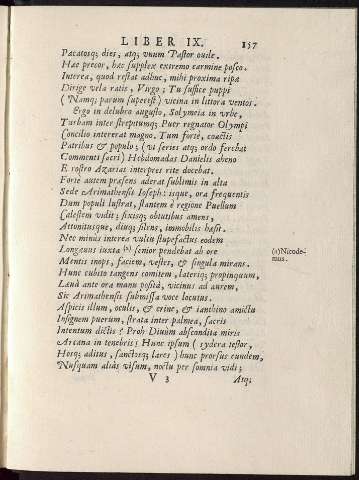 LIBER IX. 157
Pacatosq; dies, atq; vnum Pastor ouile.
Hæc precor, hæc supplex extremo carmine posco.
Interea, quod restat adhuc, mihi proxima ripæ
Dirige vela ratis, Virgo; Tu suffice puppi
(Namq; parum superest) vicina in littora ventos.
Ergo in delubro augusto, Solymeia in vrbe,
Turbam inter strepitumq; Puer regnator Olympi
Concilio intererat magno. Tum fortè, coactis
Patribus & populo; (vt series atq; ordo ferebat
Commenti sacri) Hebdomadas Danielis aheno
E rostro Azarias interpres ritè docebat.
Forte autem præsens aderat sublimis in alta
Sede Arimathensis Ioseph: isque, ora frequentis
Dum populi lustrat, stantem è regione Puellum
Cælestem vidit; fixisq; obtutibus amens,
Attonitusque, diuq; silens, immobilis hæsit.
Nec minus interea vultu stupefactus eodem
Longæuus iuxta (a) senior pendebat ab ore (a) Nicode-
mus.
Mentis inops, faciem, vestes, & singula mirans.
Hunc cubito tangens comitem, lateriq; propinquum,
Læuâ ante ora manu positâ, vicinus ad aurem,
Sic Arimathensis submissa voce locutus.
Aspicis illum, oculis, & crine, & ianthino amictu
Insignem puerum, strata inter palmea, sacris
Intentum dictis? Proh Diuûm abscondita miris
Arcana in tenebris! Hunc ipsum (sydera testor,
Hosq; aditus, sanctosq; lares) hunc prorsus eundem,
Nusquam aliàs visum, noctu per somnia vidi;
V 3 Atq;